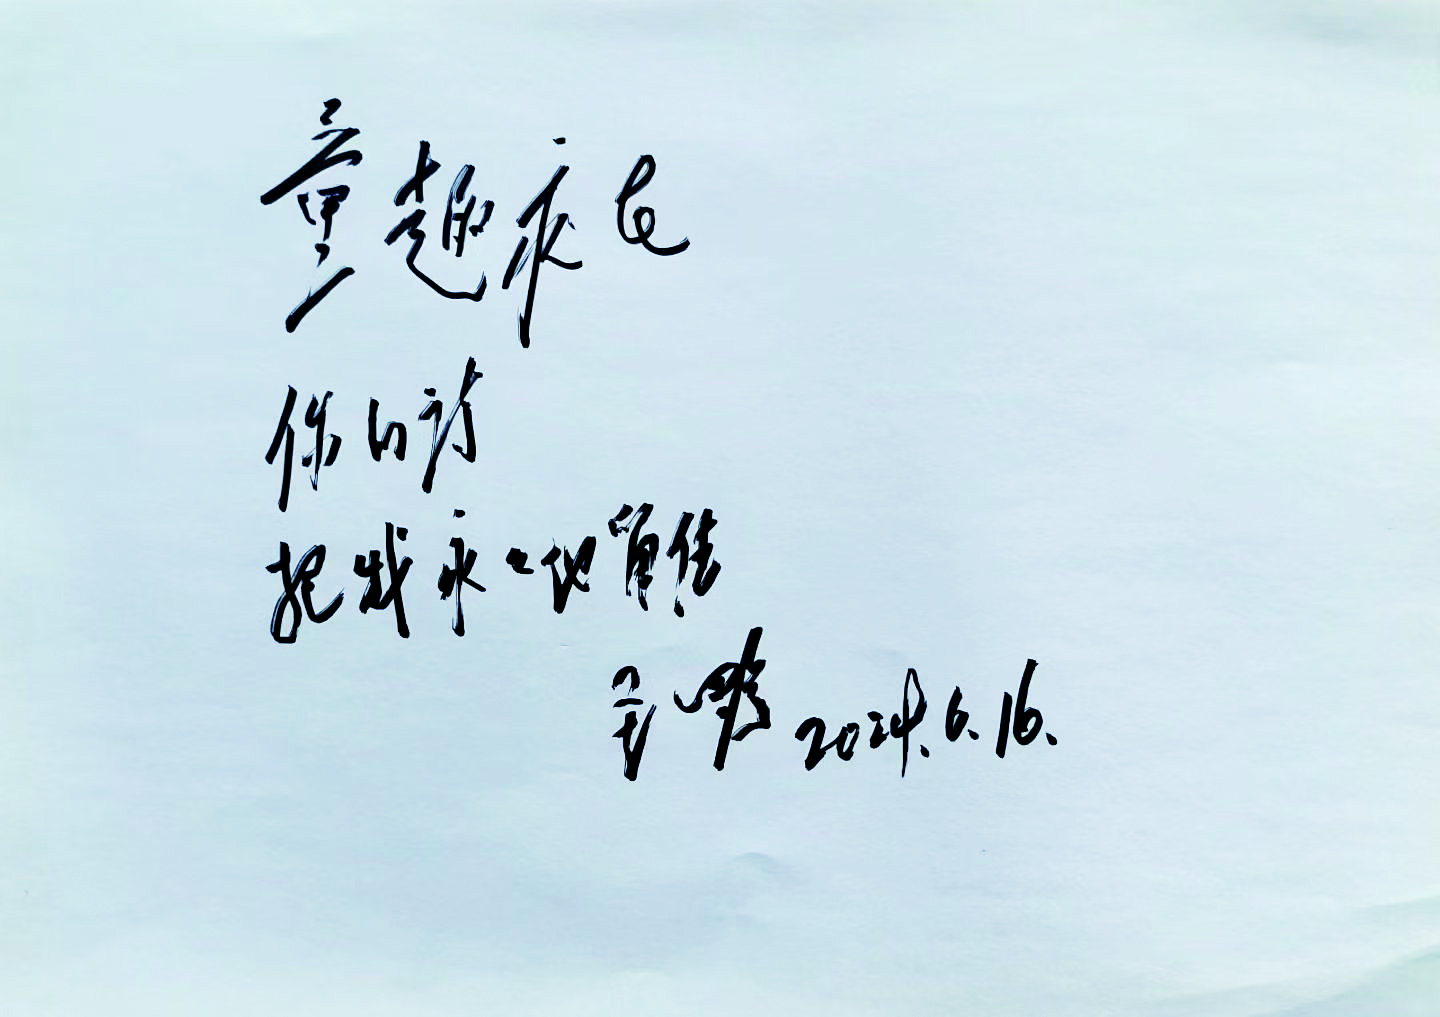 童趣永在
你的诗
把我永久地留住
2024.6.16.